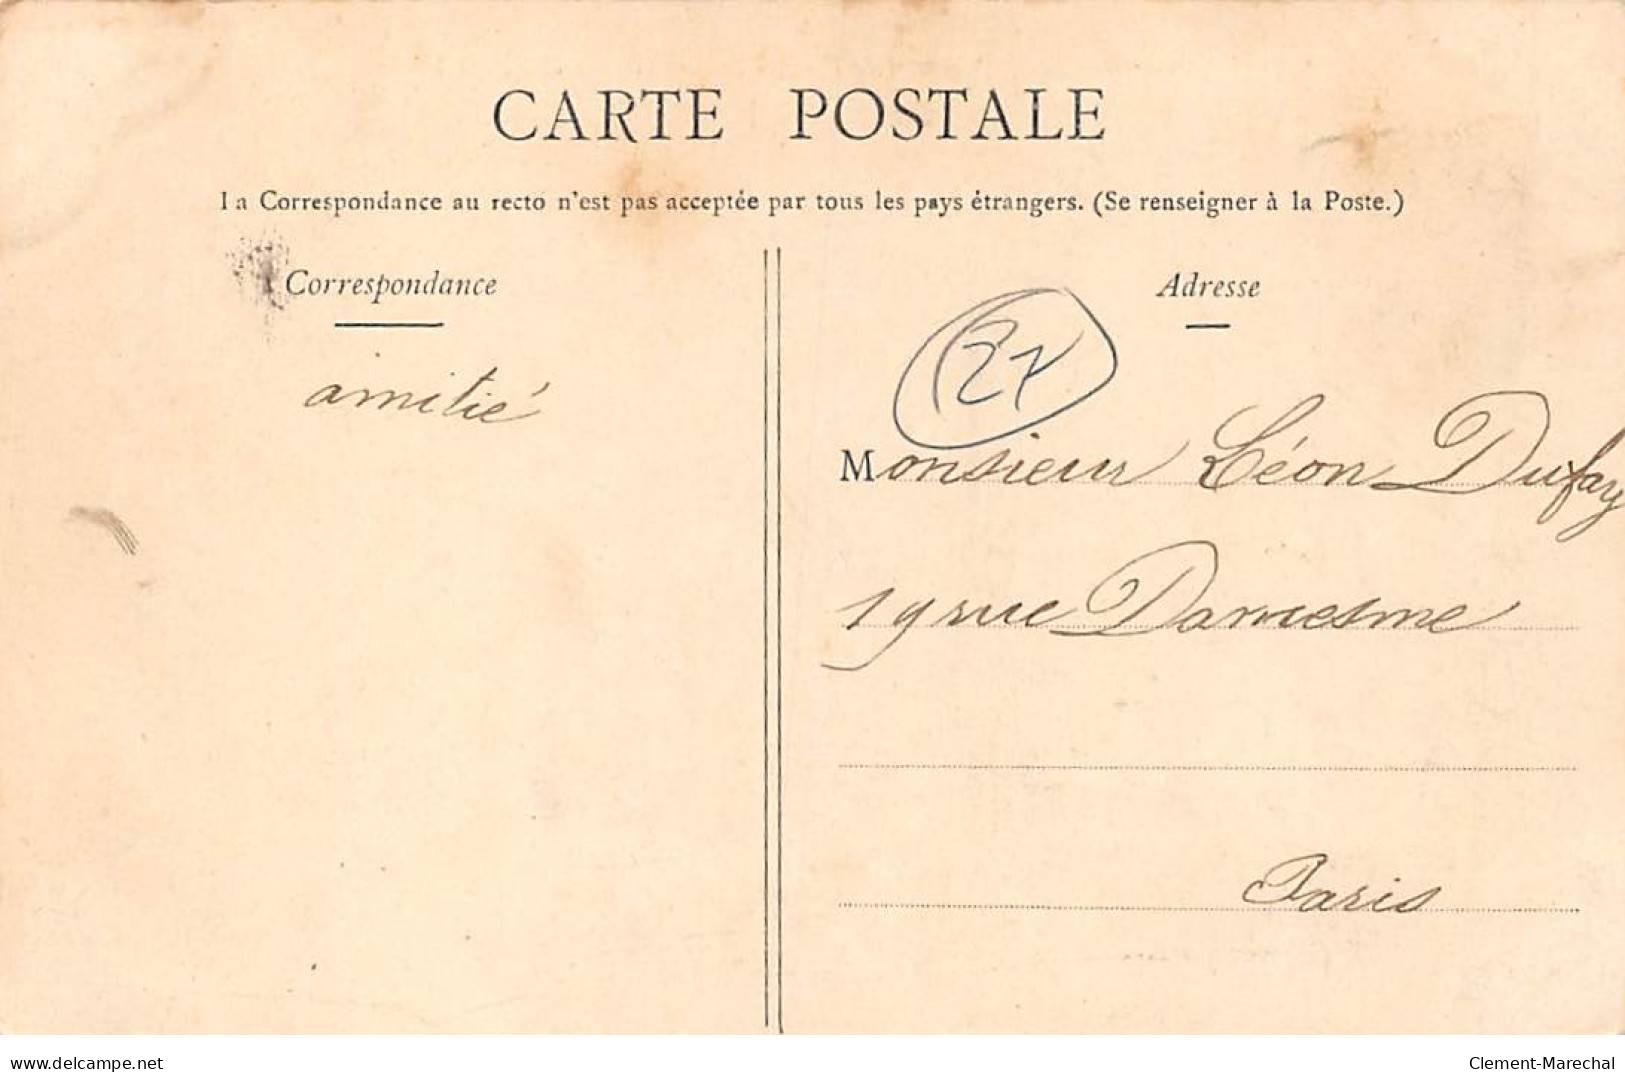 CARTE POSTALE
La Correspondance au recto n'est pas acceptée par tous les pays étrangers. (Se renseigner à la Poste.)
Correspondance
amitié
Adresse
27
Monsieur Léon Dufay
19 rue Damesme
Paris
www.delcampe.net
Clement-Marechal